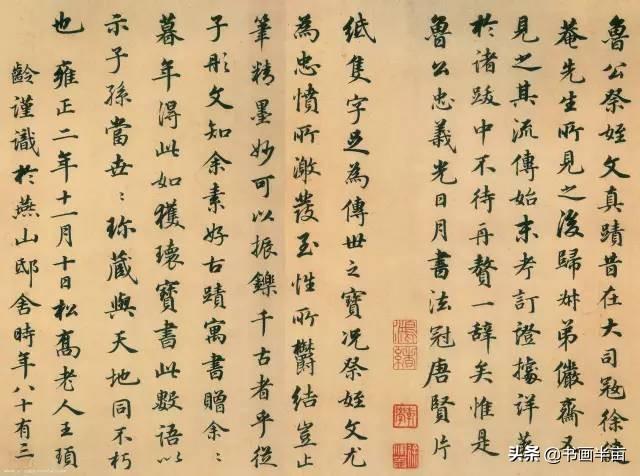 魯公祭姪文真蹟昔在大司寇徐健
菴先生所見之後歸叔弟儼齋又
見之其流傳始末考訂證據詳著
於諸跋中不待再贅一辭矣惟是
魯公忠義光日月書法冠唐賢片
紙隻字足為傳世之寶況祭姪文尤
為忠憤所激發至性所鬱結豈止
筆精墨妙可以振鑠千古者乎從
子彤文知余素好古蹟寓書贈余〻
暮年得此如獲瓌寶書此數語以
示子孫當世〻珍藏與天地同不朽
也 雍正二年十一月十日松喬老人王頊
齡謹識於燕山邸舍時年八十有三
头条 @书画半亩